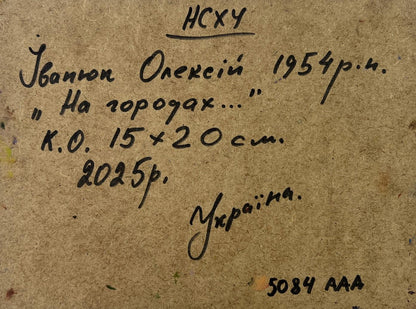 НСХУ
Іванюк Олексій 1954р.н.
"На городах..."
К.О. 15×20см.
2025р.
Україна.
5084 ААА